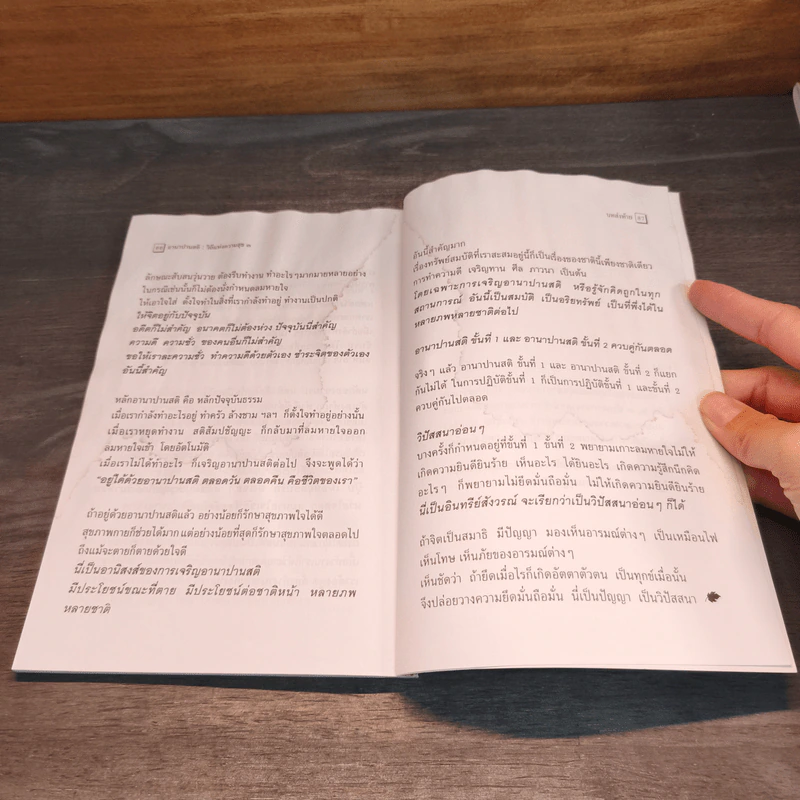 ๖๖ อานาปานสติ : วิถีแห่งความสุข ๓
ลักษณะสับสนวุ่นวาย ต้องรีบทำงาน ทำอะไรๆมากมายหลายอย่าง
ในกรณีเช่นนั้นก็ไม่ต้องนึ่งกำหนดลมหายใจ
ให้เอาใจใส่ ตั้งใจทำในสิ่งที่เรากำลังทำอยู่ ทำงานเป็นปกติ
ให้จิตอยู่กับปัจจุบัน
อดีตก็ไม่สำคัญ อนาคตก็ไม่ต้องห่วง ปัจจุบันนี้สำคัญ
ความดี ความชั่ว ของคนอื่นก็ไม่สำคัญ
ขอให้เราละความชั่ว ทำความดีด้วยตัวเอง ชำระจิตของตัวเอง
อันนี้สำคัญ
หลักอานาปานสติ คือ หลักปัจจุบันธรรม
เมื่อเรากำลังทำอะไรอยู่ ทำครัว ล้างชาม ฯลฯ ก็ตั้งใจทำอยู่อย่างนั้น
เมื่อเราหยุดทำงาน สติสัมปชัญญะ ก็กลับมาที่ลมหายใจออก
ลมหายใจเข้า โดยอัตโนมัติ
เมื่อเราไม่ได้ทำอะไร ก็เจริญอานาปานสติต่อไป จึงจะพูดได้ว่า
“อยู่ได้ด้วยอานาปานสติ ตลอดวัน ตลอดคืน คือชีวิตของเรา”
ถ้าอยู่ด้วยอานาปานสติแล้ว อย่างน้อยก็รักษาสุขภาพใจได้ดี
สุขภาพกายก็ช่วยได้มาก แต่อย่างน้อยที่สุดก็รักษาสุขภาพใจตลอดไป
ถึงแม้จะตายก็ตายด้วยใจดี
นี่เป็นอานิสงส์ของการเจริญอานาปานสติ
มีประโยชน์ขณะที่ตาย มีประโยชน์ต่อชาติหน้า หลายภพ
หลายชาติ
บทส่งท้าย ๖๗
อันนี้สำคัญมาก
เรื่องทรัพย์สมบัติที่เราสะสมอยู่นี้ก็เป็นเรื่องของชาตินี้เพียงชาติเดียว
การทำความดี เจริญทาน ศีล ภาวนา เป็นต้น
โดยเฉพาะการเจริญอานาปานสติ หรือรู้จักคิดถูกในทุก
สถานการณ์ อันนี้เป็นสมบัติ เป็นอริยทรัพย์ เป็นที่พึ่งได้ใน
หลายภพหลายชาติต่อไป
อานาปานสติ ขั้นที่ 1 และ อานาปานสติ ขั้นที่ 2 ควบคู่กันตลอด
จริงๆ แล้ว อานาปานสติ ขั้นที่ 1 และ อานาปานสติ ขั้นที่ 2 ก็แยก
กันไม่ได้ ในการปฏิบัติขั้นที่ 1 ก็เป็นการปฏิบัติขั้นที่ 1 และขั้นที่ 2
ควบคู่กันไปตลอด
วิปัสสนาอ่อนๆ
บางครั้งก็กำหนดอยู่ที่ขั้นที่ 1 ขั้นที่ 2 พยายามเกาะลมหายใจไม่ให้
เกิดความยินดียินร้าย เห็นอะไร ได้ยินอะไร เกิดความรู้สึกนึกคิด
อะไรๆ ก็พยายามไม่ยึดมั่นถือมั่น ไม่ให้เกิดความยินดียินร้าย
นี่เป็นอินทรีย์สังวรณ์ จะเรียกว่าเป็นวิปัสสนาอ่อนๆ ก็ได้
ถ้าจิตเป็นสมาธิ มีปัญญา มองเห็นอารมณ์ต่างๆ เป็นเหมือนไฟ
เห็นโทษ เห็นภัยของอารมณ์ต่างๆ
เห็นชัดว่า ถ้ายึดเมื่อไรก็เกิดอัตตาตัวตน เป็นทุกข์เมื่อนั้น
จึงปล่อยวางความยึดมั่นถือมั่น นี่เป็นปัญญา เป็นวิปัสสนา